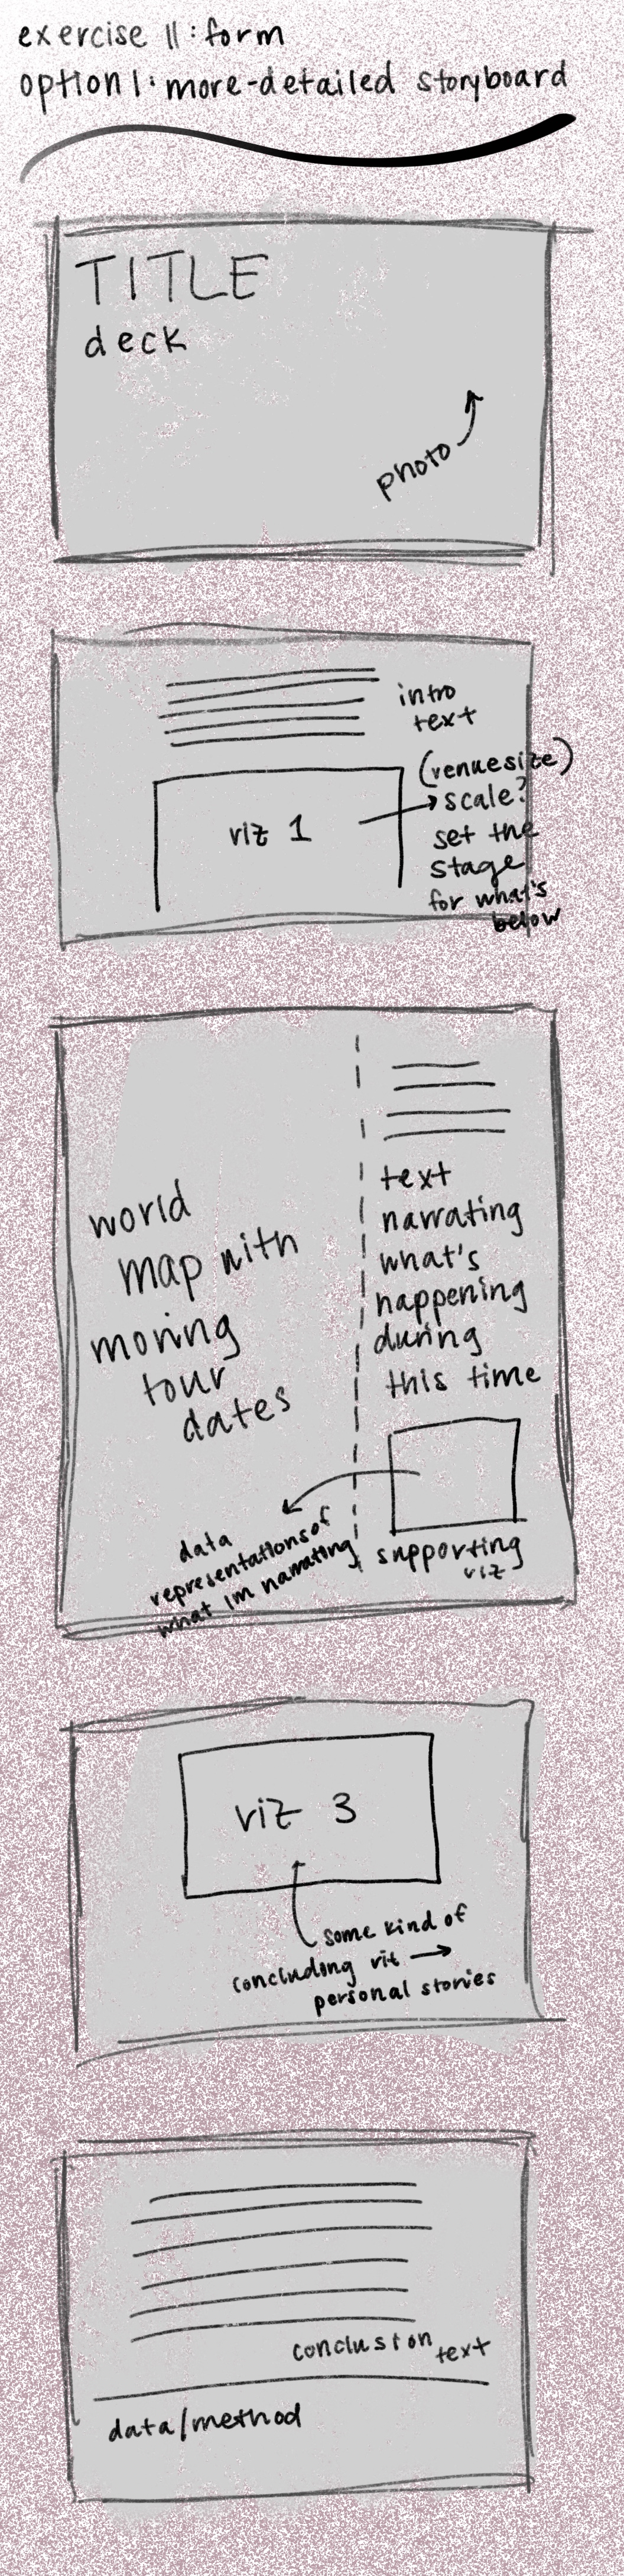 exercise 11: form
option 1: more-detailed storyboard
TITLE
deck
photo
intro
text
viz 1
(venue size)
scale?
set the
stage
for what's
below
world
map with
moving
tour
dates
text
narrating
what's
happening
during
this time
supporting
viz
data
representations of
what Im narrating
viz 3
some kind of
concluding viz →
personal stories
conclusion text
data/method